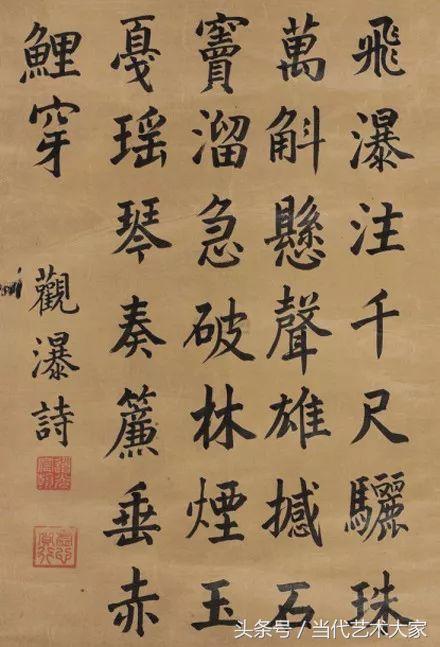 飛瀑注千尺驪珠
萬斛懸聲雄撼石
竇溜急破林煙玉
戛瑤琴奏簾垂赤
鯉穿
觀瀑詩
头条号／当代艺术大家